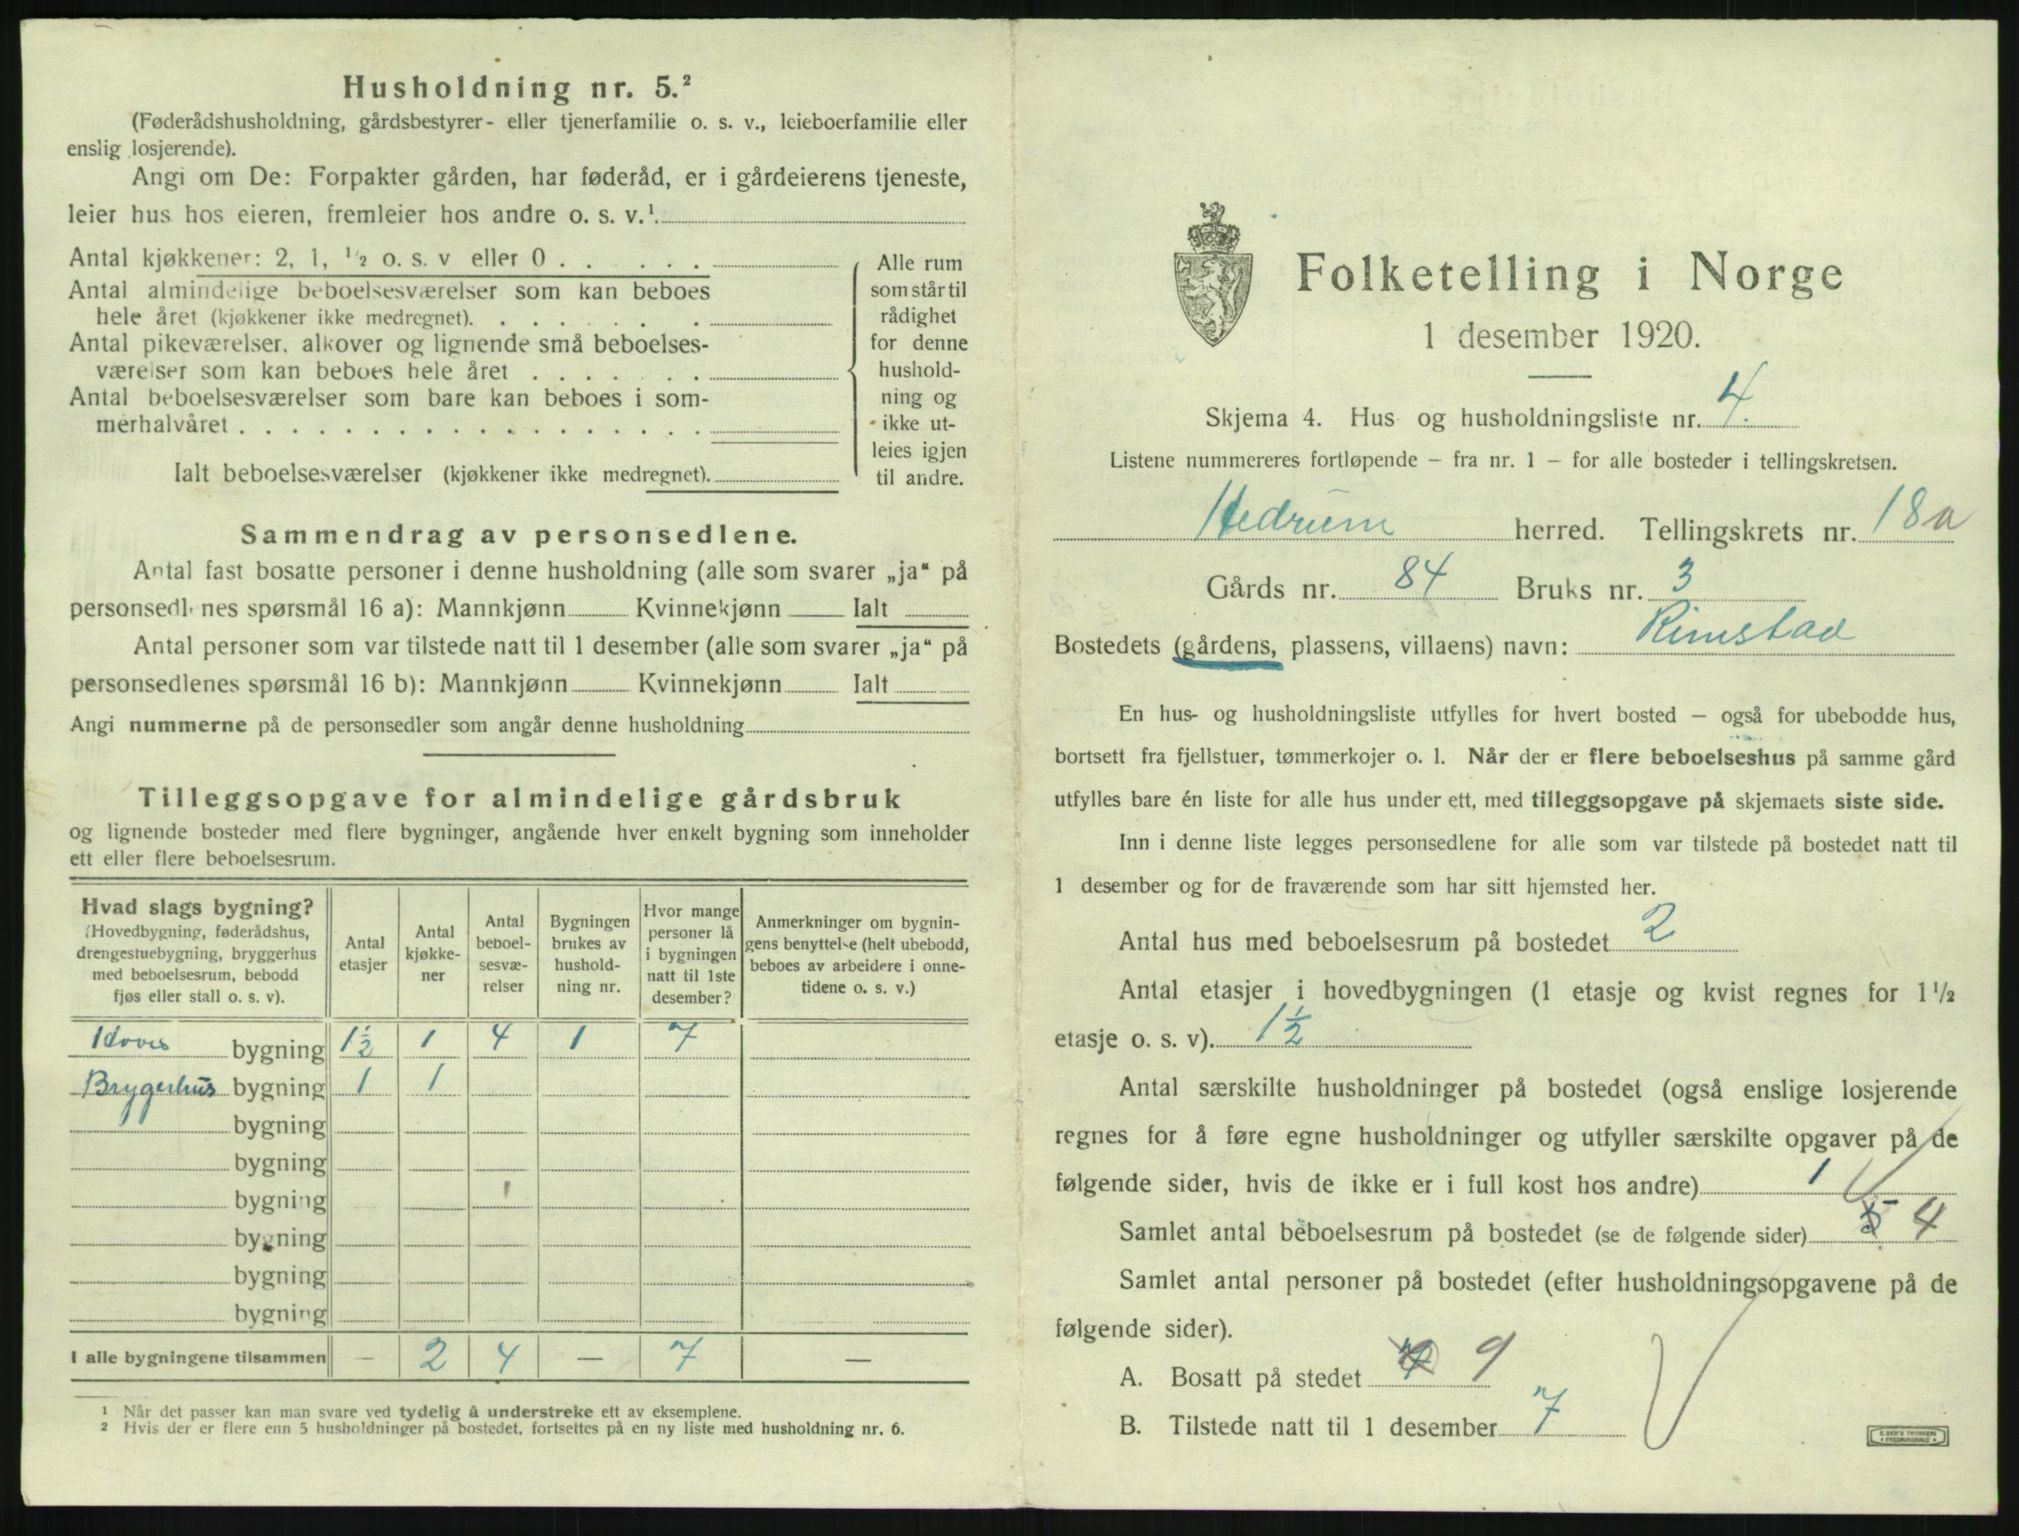 Husholdning nr. 5.²
(Føderådshusholdning, gårdsbestyrer- eller tjenerfamilie o. s. v., leieboerfamilie eller
enslig losjerende).
Angi om De: Forpakter gården, har føderåd, er i gårdeierens tjeneste,
leier hus hos eieren, fremleier hos andre o. s. v.¹
Antal kjøkkener: 2, 1, ½ o. s. v eller 0
Antal almindelige beboelsesværelser som kan beboes
hele året (kjøkkener ikke medregnet).
Antal pikeværelser, alkover og lignende små beboelses-
værelser som kan beboes hele året
Antal beboelsesværelser som bare kan beboes i som-
merhalvåret
Ialt beboelsesværelser (kjøkkener ikke medregnet).
Alle rum
som står til
rådighet
for denne
hushold-
ning og
ikke ut-
leies igjen
til andre.
Sammendrag av personsedlene.
Antal fast bosatte personer i denne husholdning (alle som svarer „ja“ på
personsedlenes spørsmål 16 a): Mannkjønn Kvinnekjønn Ialt
Antal personer som var tilstede natt til 1 desember (alle som svarer „ja“ på
personsedlenes spørsmål 16 b): Mannkjønn Kvinnekjønn Ialt
Angi nummerne på de personsedler som angår denne husholdning
Tilleggsopgave for almindelige gårdsbruk
og lignende bosteder med flere bygninger, angående hver enkelt bygning som inneholder
ett eller flere beboelsesrum.
Hvad slags bygning?
(Hovedbygning, føderådshus,
drengestuebygning, bryggerhus
med beboelsesrum, bebodd
fjøs eller stall o. s. v).
Antal
etasjer
Antal
kjøkke-
ner
Antal
beboel-
sesvæ-
relser
Bygningen
brukes av
hushold-
ning nr.
Hvor mange
personer lå
i bygningen
natt til 1ste
desember?
Anmerkninger om bygnin-
gens benyttelse (helt ubebodd,
beboes av arbeidere i onne-
tidene o. s. v.)
Hoved bygning 1½ 1 4 1 7
Brygerhus bygning 1 1
bygning
bygning
bygning
bygning
bygning
bygning
I alle bygningene tilsammen — 2 4 — 7 —
¹ Når det passer kan man svare ved tydelig å understreke ett av eksemplene.
² Hvis der er flere enn 5 husholdninger på bostedet, fortsettes på en ny liste med husholdning nr. 6.
Folketelling i Norge
1 desember 1920.
Skjema 4. Hus og husholdningsliste nr. 4.
Listene nummereres fortløpende – fra nr. 1 – for alle bosteder i tellingskretsen.
Hedrum herred. Tellingskrets nr. 18a
Gårds nr. 84 Bruks nr. 3
Bostedets (gårdens, plassens, villaens) navn: Rimstad
En hus- og husholdningsliste utfylles for hvert bosted – også for ubebodde hus,
bortsett fra fjellstuer, tømmerkojer o. l. Når der er flere beboelseshus på samme gård
utfylles bare én liste for alle hus under ett, med tilleggsopgave på skjemaets siste side.
Inn i denne liste legges personsedlene for alle som var tilstede på bostedet natt til
1 desember og for de fraværende som har sitt hjemsted her.
Antal hus med beboelsesrum på bostedet 2
Antal etasjer i hovedbygningen (1 etasje og kvist regnes for 1½
etasje o. s. v). 1½
Antal særskilte husholdninger på bostedet (også enslige losjerende
regnes for å føre egne husholdninger og utfyller særskilte opgaver på de
følgende sider, hvis de ikke er i full kost hos andre) 1
Samlet antal beboelsesrum på bostedet (se de følgende sider) 5 4
Samlet antal personer på bostedet (efter husholdningsopgavene på de
følgende sider).
A. Bosatt på stedet 7 9
B. Tilstede natt til 1 desember 7